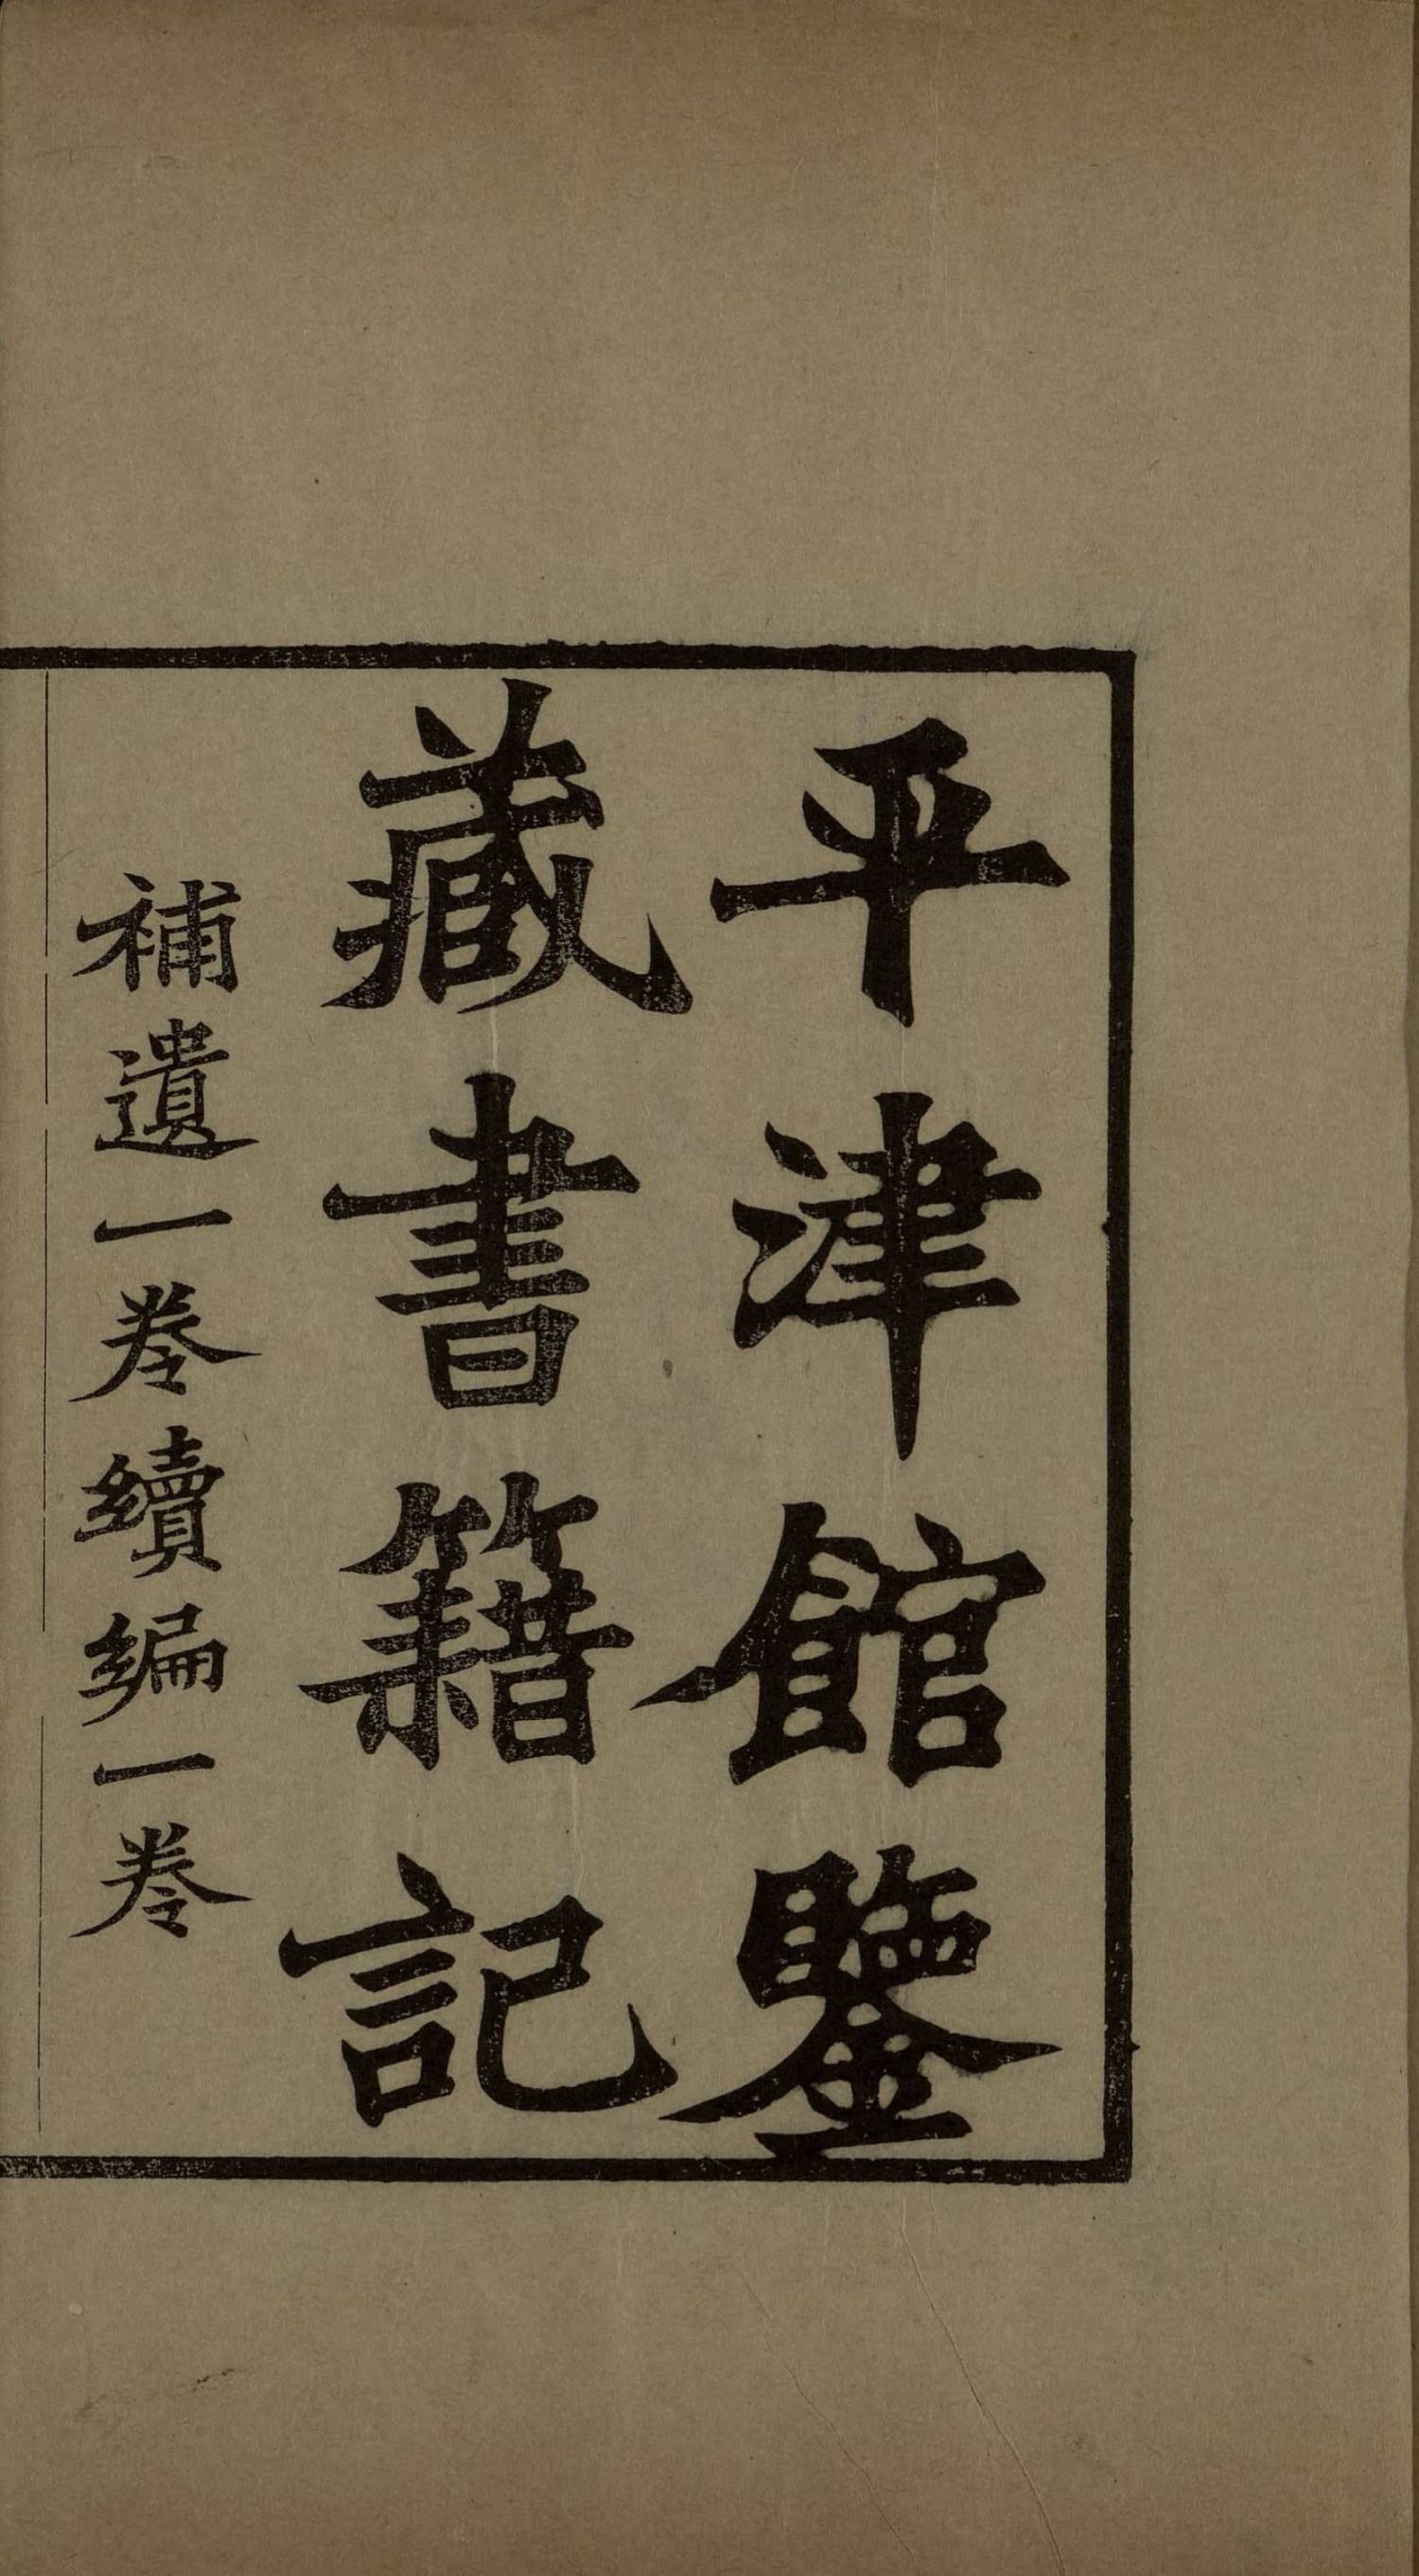 平津館鑒
藏書籍記
補遺一卷續編一卷